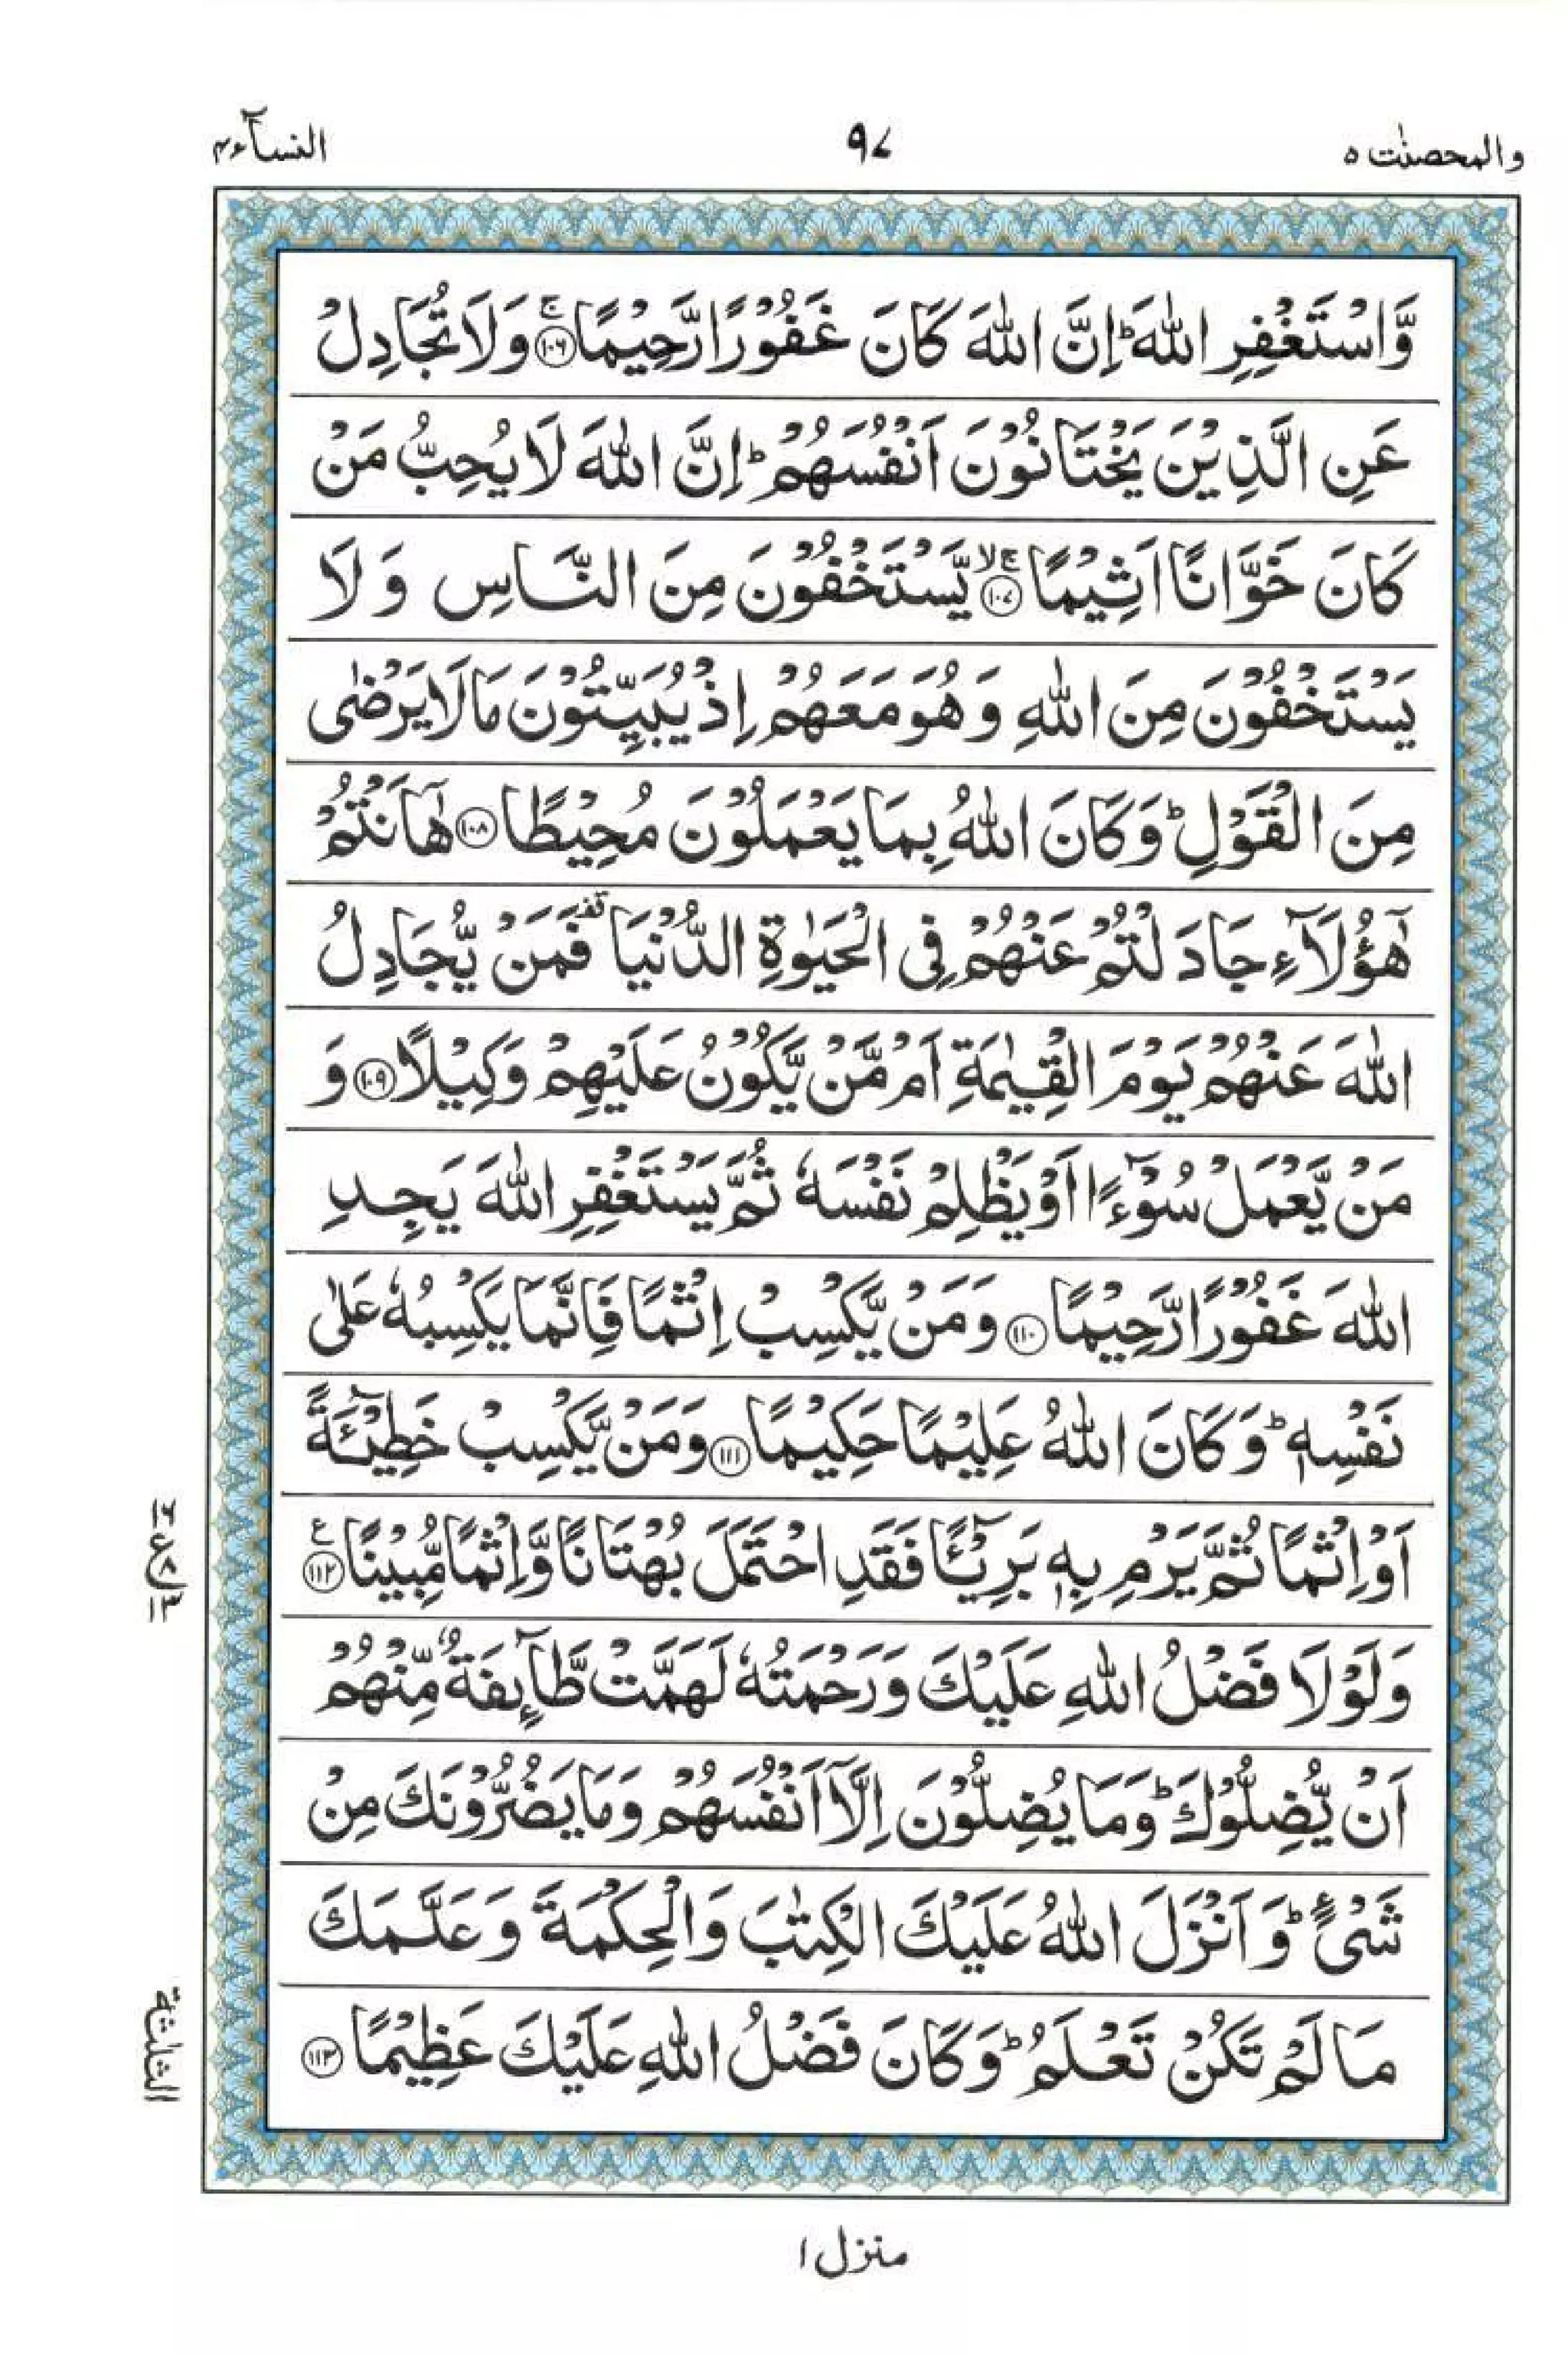 والمحصنٰت ۵
۹۷
النسآء ۴
وَّاسْتَغْفِرِ اللّٰهَ ؕ اِنَّ اللّٰهَ كَانَ غَفُوْرًا رَّحِیْمًا ۚ﴿۱۰۶﴾ وَلَا تُجَادِلْ
عَنِ الَّذِیْنَ یَخْتَانُوْنَ اَنْفُسَهُمْ ؕ اِنَّ اللّٰهَ لَا یُحِبُّ مَنْ
كَانَ خَوَّانًا اَثِیْمًا ۚۙ﴿۱۰۷﴾ یَّسْتَخْفُوْنَ مِنَ النَّاسِ وَلَا
یَسْتَخْفُوْنَ مِنَ اللّٰهِ وَهُوَ مَعَهُمْ اِذْ یُبَیِّتُوْنَ مَا لَا یَرْضٰی
مِنَ الْقَوْلِ ؕ وَكَانَ اللّٰهُ بِمَا یَعْمَلُوْنَ مُحِیْطًا ﴿۱۰۸﴾ هٰۤاَنْتُمْ
هٰۤؤُلَآءِ جَادَلْتُمْ عَنْهُمْ فِی الْحَیٰوةِ الدُّنْیَا قف فَمَنْ یُّجَادِلُ
اللّٰهَ عَنْهُمْ یَوْمَ الْقِیٰمَةِ اَمْ مَّنْ یَّكُوْنُ عَلَیْهِمْ وَكِیْلًا ﴿۱۰۹﴾ وَ
مَنْ یَّعْمَلْ سُوْٓءًا اَوْ یَظْلِمْ نَفْسَهٗ ثُمَّ یَسْتَغْفِرِ اللّٰهَ یَجِدِ
اللّٰهَ غَفُوْرًا رَّحِیْمًا ﴿۱۱۰﴾ وَمَنْ یَّكْسِبْ اِثْمًا فَاِنَّمَا یَكْسِبُهٗ عَلٰی
نَفْسِهٖ ؕ وَكَانَ اللّٰهُ عَلِیْمًا حَكِیْمًا ﴿۱۱۱﴾ وَمَنْ یَّكْسِبْ خَطِیْٓئَةً
اَوْ اِثْمًا ثُمَّ یَرْمِ بِهٖ بَرِیْٓئًا فَقَدِ احْتَمَلَ بُهْتَانًا وَّاِثْمًا مُّبِیْنًا ﴿۱۱۲﴾ ع
وَلَوْلَا فَضْلُ اللّٰهِ عَلَیْكَ وَرَحْمَتُهٗ لَهَمَّتْ طَّآئِفَةٌ مِّنْهُمْ
اَنْ یُّضِلُّوْكَ ؕ وَمَا یُضِلُّوْنَ اِلَّاۤ اَنْفُسَهُمْ وَمَا یَضُرُّوْنَكَ مِنْ
شَیْءٍ ؕ وَاَنْزَلَ اللّٰهُ عَلَیْكَ الْكِتٰبَ وَالْحِكْمَةَ وَعَلَّمَكَ
مَا لَمْ تَكُنْ تَعْلَمُ ؕ وَكَانَ فَضْلُ اللّٰهِ عَلَیْكَ عَظِیْمًا ﴿۱۱۳﴾
الثلٰثة
منزل ۱